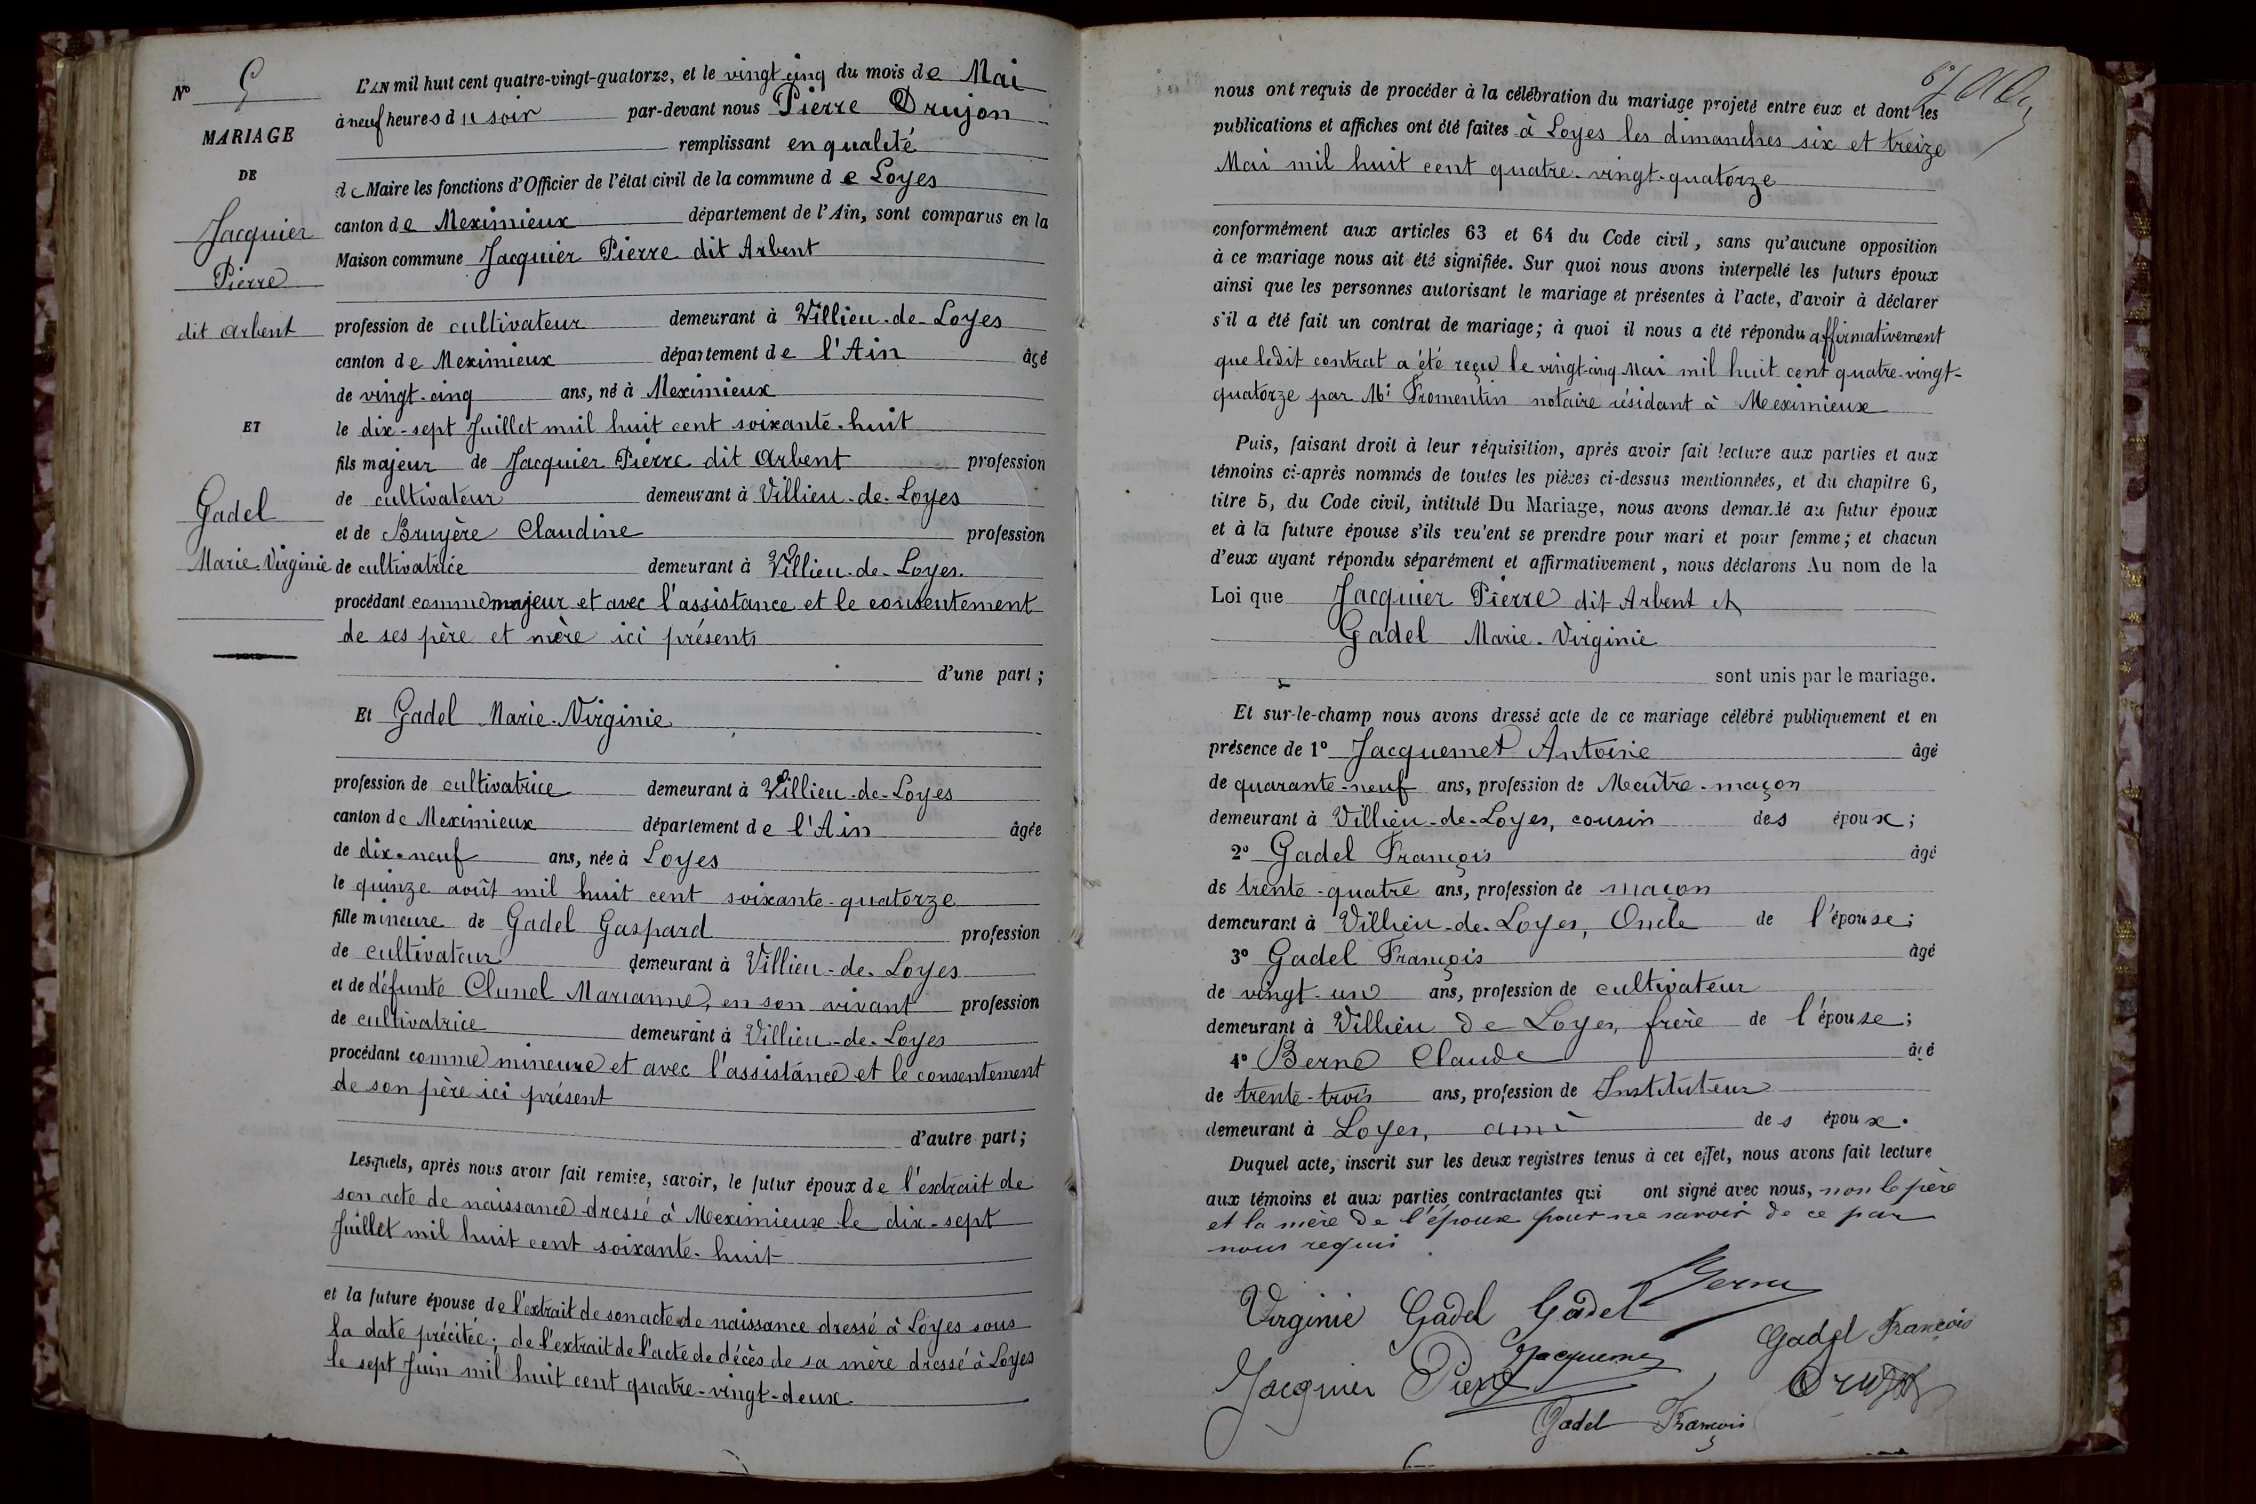 Nº 5
MARIAGE
DE
Jacquier
Pierre
dit Arbent
ET
Gadel
Marie-Virginie
L'AN mil huit cent quatre-vingt-quatorze, et le vingt cinq du mois de Mai
à neuf heures du soir par-devant nous Pierre Drujon
remplissant en qualité
de Maire les fonctions d'Officier de l'état civil de la commune de Loyes
canton de Meximieux département de l'Ain, sont comparus en la
Maison commune Jacquier Pierre dit Arbent
profession de cultivateur demeurant à Villieu-de-Loyes
canton de Meximieux département de l'Ain âgé
de vingt-cinq ans, né à Meximieux
le dix-sept Juillet mil huit cent soixante-huit
fils majeur de Jacquier Pierre dit Arbent profession
de cultivateur demeurant à Villieu-de-Loyes
et de Bruyère Claudine profession
de cultivatrice demeurant à Villieu-de-Loyes.
procédant comme majeur et avec l'assistance et le consentement
de ses père et mère ici présents
d'une part ;
Et Gadel Marie-Virginie
profession de cultivatrice demeurant à Villieu-de-Loyes
canton de Meximieux département de l'Ain âgée
de dix-neuf ans, née à Loyes
le quinze août mil huit cent soixante-quatorze
fille mineure de Gadel Gaspard profession
de cultivateur demeurant à Villieu-de-Loyes
et de défunte Clunel Marianne, en son vivant profession
de cultivatrice demeurant à Villieu-de-Loyes
procédant comme mineure et avec l'assistance et le consentement
de son père ici présent
d'autre part ;
Lesquels, après nous avoir fait remise, savoir, le futur époux de l'extrait de
son acte de naissance dressé à Meximieux le dix-sept
Juillet mil huit cent soixante-huit
et la future épouse de l'extrait de son acte de naissance dressé à Loyes sous
la date précitée ; de l'extrait de l'acte de décès de sa mère dressé à Loyes
le sept Juin mil huit cent quatre-vingt-deux.
nous ont requis de procéder à la célébration du mariage projeté entre eux et dont les
publications et affiches ont été faites à Loyes les dimanches six et treize
Mai mil huit cent quatre-vingt-quatorze
conformément aux articles 63 et 64 du Code civil, sans qu'aucune opposition
à ce mariage nous ait été signifiée. Sur quoi nous avons interpellé les futurs époux
ainsi que les personnes autorisant le mariage et présentes à l'acte, d'avoir à déclarer
s'il a été fait un contrat de mariage ; à quoi il nous a été répondu affirmativement
que ledit contrat a été reçu le vingt-cinq Mai mil huit cent quatre-vingt-
quatorze par Me Fromentin notaire résidant à Meximieux
Puis, faisant droit à leur réquisition, après avoir fait lecture aux parties et aux
témoins ci-après nommés de toutes les pièces ci-dessus mentionnées, et du chapitre 6,
titre 5, du Code civil, intitulé Du Mariage, nous avons demandé au futur époux
et à la future épouse s'ils veulent se prendre pour mari et pour femme ; et chacun
d'eux ayant répondu séparément et affirmativement, nous déclarons Au nom de la
Loi que Jacquier Pierre dit Arbent et
Gadel Marie-Virginie
sont unis par le mariage.
Et sur-le-champ nous avons dressé acte de ce mariage célébré publiquement et en
présence de 1º Jacquemet Antoine âgé
de quarante-neuf ans, profession de Maître-maçon
demeurant à Villieu-de-Loyes, cousin des époux ;
2º Gadel François âgé
de trente-quatre ans, profession de maçon
demeurant à Villieu-de-Loyes, Oncle de l'épouse ;
3º Gadel François âgé
de vingt-un ans, profession de cultivateur
demeurant à Villieu de Loyes, frère de l'épouse ;
4º Berne Claude âgé
de trente-trois ans, profession de Instituteur
demeurant à Loyes, ami des époux.
Duquel acte, inscrit sur les deux registres tenus à cet effet, nous avons fait lecture
aux témoins et aux parties contractantes qui ont signé avec nous, non le père
et la mère de l'époux pour ne savoir de ce par
nous requis
Virginie Gadel Gadel Berne
Jacquemet Gadel François
Jacquier Pierre Drujon
Gadel François